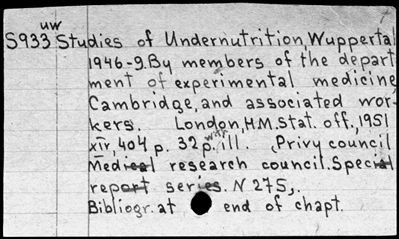 uw
S933 Studies of Undernutrition, Wuppertal
1946-9. By members of the depart
ment of experimental medicine
Cambridge, and associated wor-
kers. London, H.M. Stat. off., 1951
xiv, 404 p. 32 p. ill. (Privy council
Medical research council. Special
report series. N 275).
Bibliogr. at end of chapt.